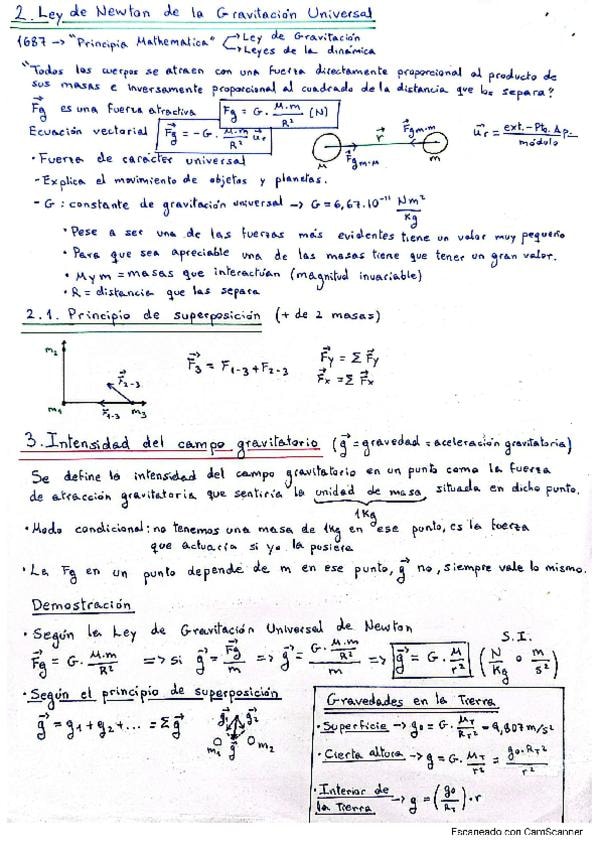 2. Ley de Newton de la Gravitación Universal
1687 → "Principia Mathematica" → Ley de Gravitación
→ Leyes de la dinámica
"Todos los cuerpos se atraen con una fuerza directamente proporcional al producto de
sus masas e inversamente proporcional al cuadrado de la distancia que los separa?
F⃗g es una fuerza atractiva Fg = G · M·m/R² (N)
Ecuación vectorial F⃗g = -G · M·m/R² u⃗r
M F⃗g m-M r⃗ F⃗g M-m m
u⃗r = ext. - Pto. Ap. / módulo
· Fuerza de carácter universal
- Explica el movimiento de objetos y planetas.
- G : constante de gravitación universal → G = 6,67·10⁻¹¹ Nm²/Kg
· Pese a ser una de las fuerzas más evidentes tiene un valor muy pequeño
· Para que sea apreciable una de las masas tiene que tener un gran valor.
· M y m = masas que interactúan (magnitud invariable)
· R = distancia que las separa
2.1. Principio de superposición (+ de 2 masas)
m₂
F⃗2-3
m₁ F⃗1-3 m₃
F⃗3 = F1-3 + F2-3
F⃗y = Σ F⃗y
F⃗x = Σ F⃗x
3. Intensidad del campo gravitatorio (g⃗ = gravedad = aceleración gravitatoria)
Se define la intensidad del campo gravitatorio en un punto como la fuerza
de atracción gravitatoria que sentiría la unidad de masa situada en dicho punto.
1Kg
· Modo condicional: no tenemos una masa de 1Kg en ese punto, es la fuerza
que actuaría si yo la pusiera
· La Fg en un punto depende de m en ese punto, g⃗ no, siempre vale lo mismo.
Demostración
· Según la Ley de Gravitación Universal de Newton
F⃗g = G · M·m/R² => si g⃗ = F⃗g/m => g⃗ = (G · M·m/R²)/m => g⃗ = G · M/r² S.I. (N/Kg o m/s²)
· Según el principio de superposición
g⃗ = g₁ + g₂ + ... = Σg⃗
g⃗₁ g⃗₂
m₁ g⃗ m₂
Gravedades en la Tierra
· Superficie → g₀ = G · MT/RT² = 9,807 m/s²
· Cierta altura → g = G · MT/r² = g₀·RT²/r²
· Interior de
la Tierra → g = (g₀/RT) · r
Escaneado con CamScanner